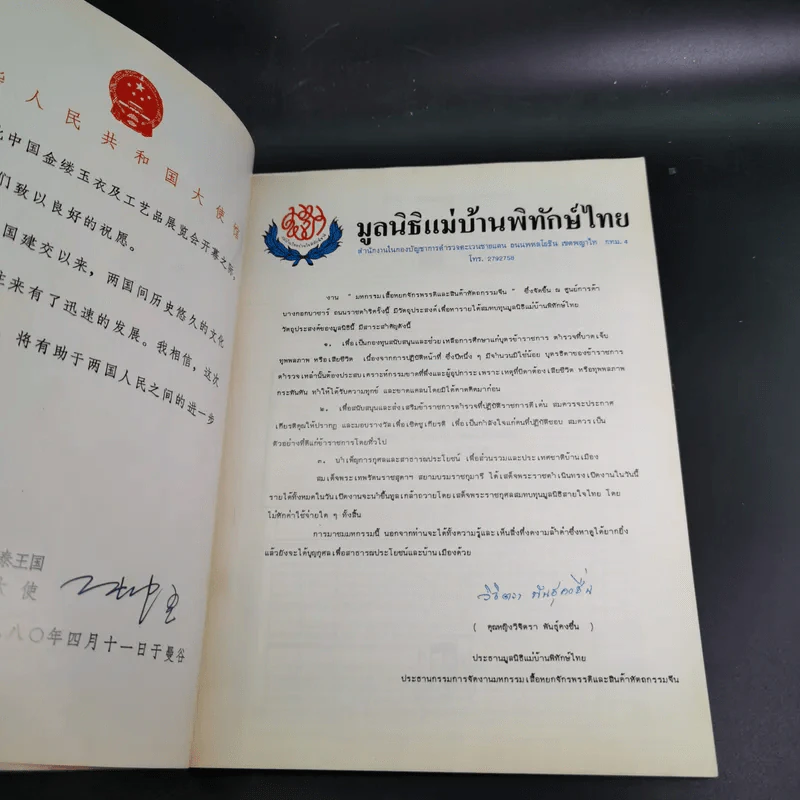 人民共和国大使馆
中国金缕玉衣及工艺品展览会开幕之际,
们致以良好的祝愿。
国建交以来,两国间历史悠久的文化
往来有了迅速的发展。我相信,这次
将有助于两国人民之间的进一步
泰王国
大使
八〇年四月十一日于曼谷
มูลนิธิแม่บ้านพิทักษ์ไทย
สำนักงานในกองบัญชาการตำรวจตะเวนชายแดน ถนนพหลโยธิน เขตพญาไท กทม. 4
โทร. 2792758
งาน " มหกรรมเสื้อหยกจักรพรรดิและสินค้าหัตถกรรมจีน " ซึ่งจัดขึ้น ณ ศูนย์การค้า
บางกอกบาซาร์ ถนนราชดำริครั้งนี้ มีวัตถุประสงค์เพื่อหารายได้สมทบทุนมูลนิธิแม่บ้านพิทักษ์ไทย
วัตถุประสงค์ของมูลนิธินี้ มีสาระสำคัญดังนี้
๑. เพื่อเป็นกองทุนสนับสนุนและช่วยเหลือการศึกษาแก่บุตรข้าราชการ ตำรวจที่บาดเจ็บ
ทุพพลภาพ หรือเสียชีวิต เนื่องจากการปฏิบัติหน้าที่ ซึ่งปีหนึ่ง ๆ มีจำนวนมิใช่น้อย บุตรธิดาของข้าราชการ
ตำรวจเหล่านั้นต้องประสบเคราะห์กรรมขาดที่พึ่งและผู้อุปการะ เพราะเหตุที่บิดาต้องเสียชีวิต หรือทุพพลภาพ
กระทันหัน ทำให้ได้รับความทุกข์ และขาดแคลนโดยมิได้คาดคิดมาก่อน
๒. เพื่อสนับสนุนและส่งเสริมข้าราชการตำรวจที่ปฏิบัติราชการดีเด่น สมควรจะประกาศ
เกียรติคุณให้ปรากฏ และมอบรางวัลเพื่อเชิดชูเกียรติ เพื่อเป็นกำลังใจแก่คนที่ปฏิบัติชอบ สมควรเป็น
ตัวอย่างที่ดีแก่ข้าราชการโดยทั่วไป
๓. บำเพ็ญการกุศลและสาธารณประโยชน์ เพื่อส่วนรวมและประเทศชาติบ้านเมือง
สมเด็จพระเทพรัตนราชสุดาฯ สยามบรมราชกุมารี ได้เสด็จพระราชดำเนินทรงเปิดงานในวันนี้
รายได้ทั้งหมดในวันเปิดงานจะนำขึ้นทูลเกล้าถวายโดยเสด็จพระราชกุศลสมทบทุนมูลนิธิสายใจไทย โดย
ไม่หักค่าใช้จ่ายใด ๆ ทั้งสิ้น
การมาชมมหกรรมนี้ นอกจากท่านจะได้ทั้งความรู้และเห็นสิ่งที่งดงามล้ำค่าซึ่งหาดูได้ยากยิ่ง
แล้วยังจะได้บุญกุศลเพื่อสาธารณประโยชน์และบ้านเมืองด้วย
วิจิตรา พันธุ์คงชื่น
( คุณหญิงวิจิตรา พันธุ์คงชื่น )
ประธานมูลนิธิแม่บ้านพิทักษ์ไทย
ประธานกรรมการจัดงานมหกรรมเสื้อหยกจักรพรรดิและสินค้าหัตถกรรมจีน